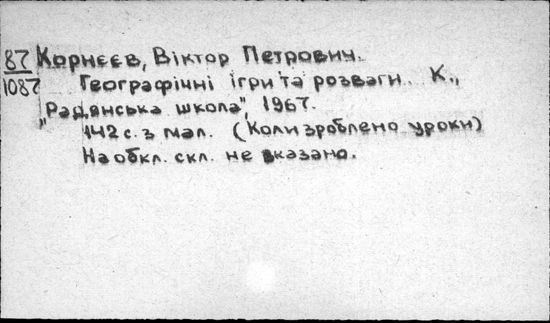 87 Корнєєв, Віктор Петрович.
1087 Географічні ігри та розваги. К.,
„Радянська школа", 1967.
142 с. з мал. (Коли зроблено уроки)
На обкл. скл. не вказано.